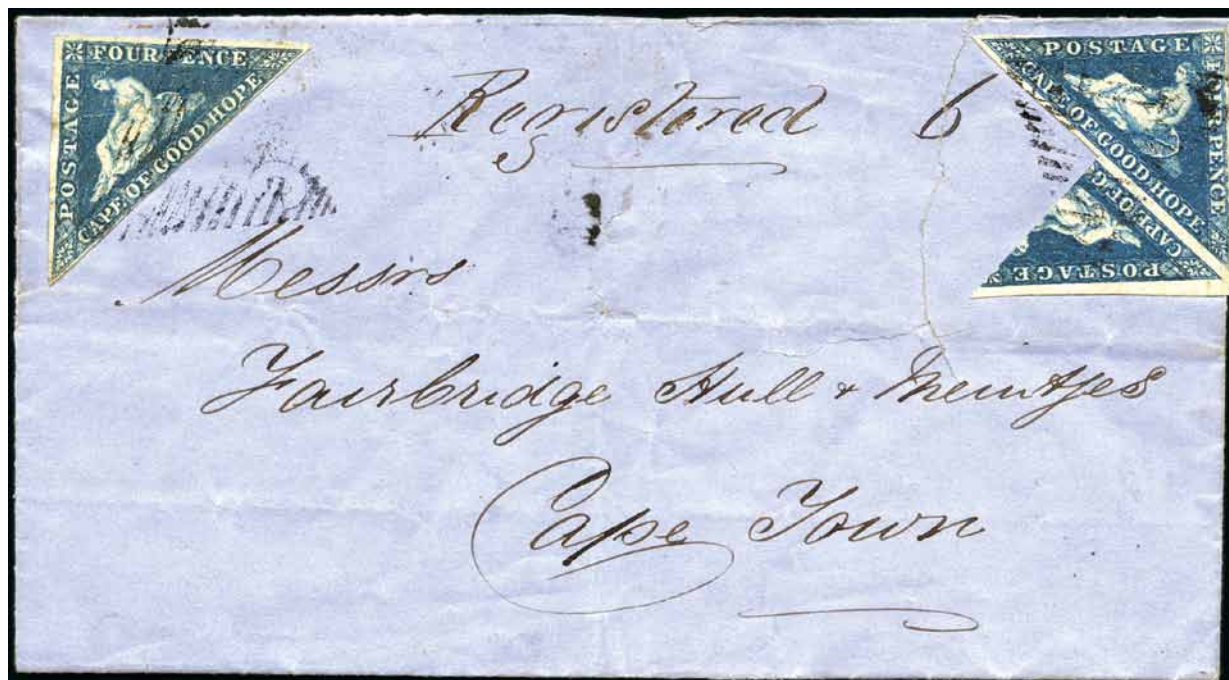 FOUR PENCE
POSTAGE
CAPE OF GOOD HOPE
POSTAGE
FOUR PENCE
CAPE OF GOOD HOPE
CAPE OF G
POSTAGE
Registered 6
Messrs
Fairbridge Hull + Meintjes
Cape Town